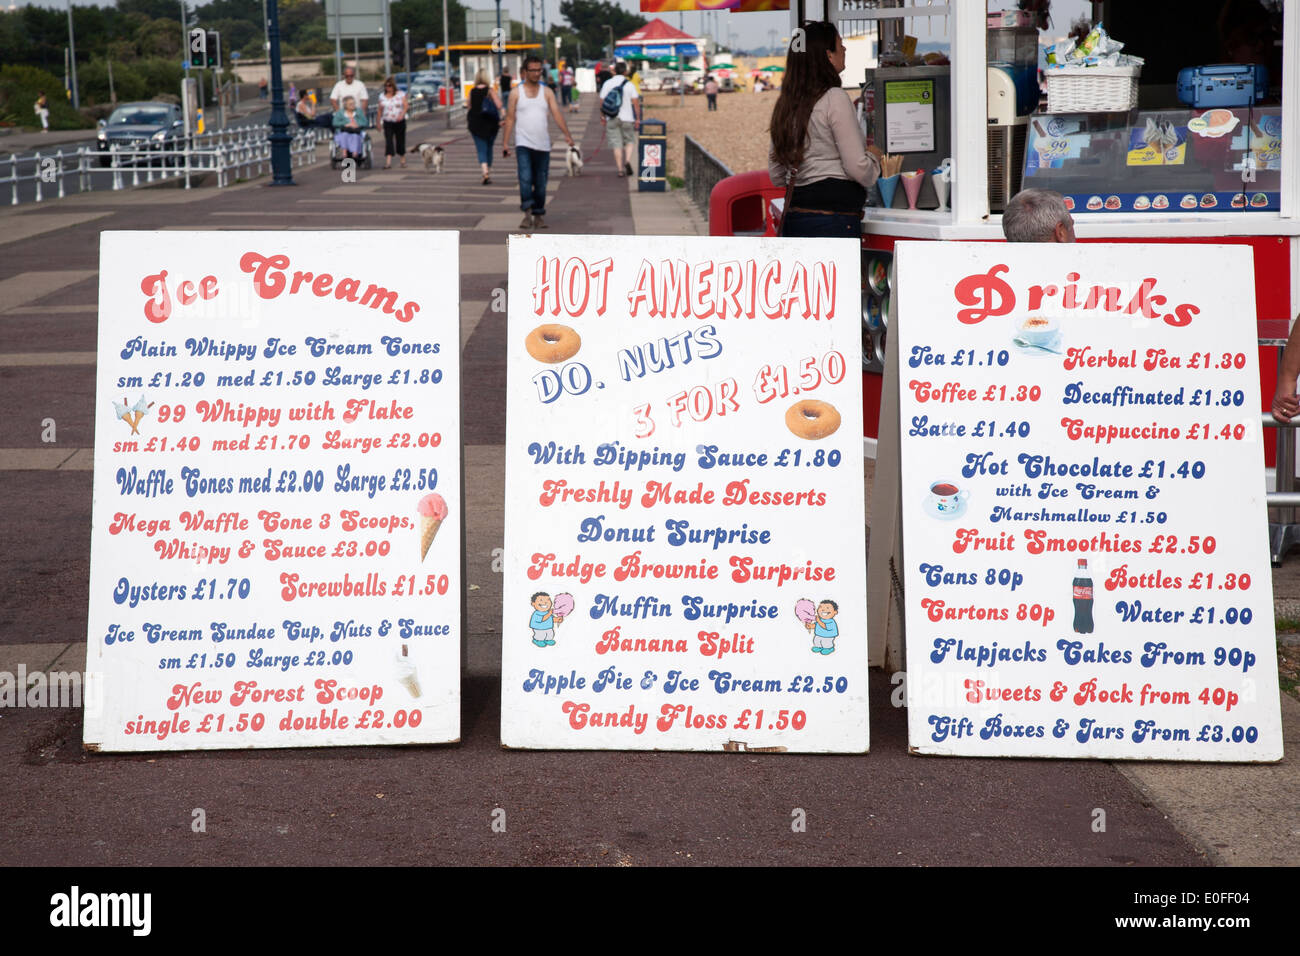 Ice Creams
Plain Whippy Ice Cream Cones
sm £1.20 med £1.50 Large £1.80
99 Whippy with Flake
sm £1.40 med £1.70 Large £2.00
Waffle Cones med £2.00 Large £2.50
Mega Waffle Cone 3 Scoops,
Whippy & Sauce £3.00
Oysters £1.70 Screwballs £1.50
Ice Cream Sundae Cup, Nuts & Sauce
sm £1.50 Large £2.00
New Forest Scoop
single £1.50 double £2.00
HOT AMERICAN
DO. NUTS
3 FOR £1.50
With Dipping Sauce £1.80
Freshly Made Desserts
Donut Surprise
Fudge Brownie Surprise
Muffin Surprise
Banana Split
Apple Pie & Ice Cream £2.50
Candy Floss £1.50
Drinks
Tea £1.10 Herbal Tea £1.30
Coffee £1.30 Decaffinated £1.30
Latte £1.40 Cappuccino £1.40
Hot Chocolate £1.40
with Ice Cream &
Marshmallow £1.50
Fruit Smoothies £2.50
Cans 80p Bottles £1.30
Cartons 80p Water £1.00
Flapjacks Cakes From 90p
Sweets & Rock from 40p
Gift Boxes & Jars From £3.00
99
99
alamy
Image ID: E0FF04
www.alamy.com